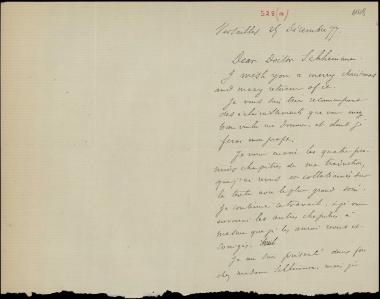 528 (a)
Versailles 25 décembre 77.
Dear Doctor Schliemann
I wish you a merry christmas
and many returns of it.
Je vous suis très reconnaissant
des éclaircissements que vous avez
bien voulu me donner, et dont je
ferai mon profit.
Je vous envoie les quatre pre-
miers chapitres de ma traduction,
que j'ai revus et collationnés sur
le texte avec le plus grand soin.
Je continue ce travail, et je vous
enverrai les autres chapitres à
mesure que je les aurai revus et
corrigés.
Je me suis présenté deux fois
chez madame Schliemann, mais je